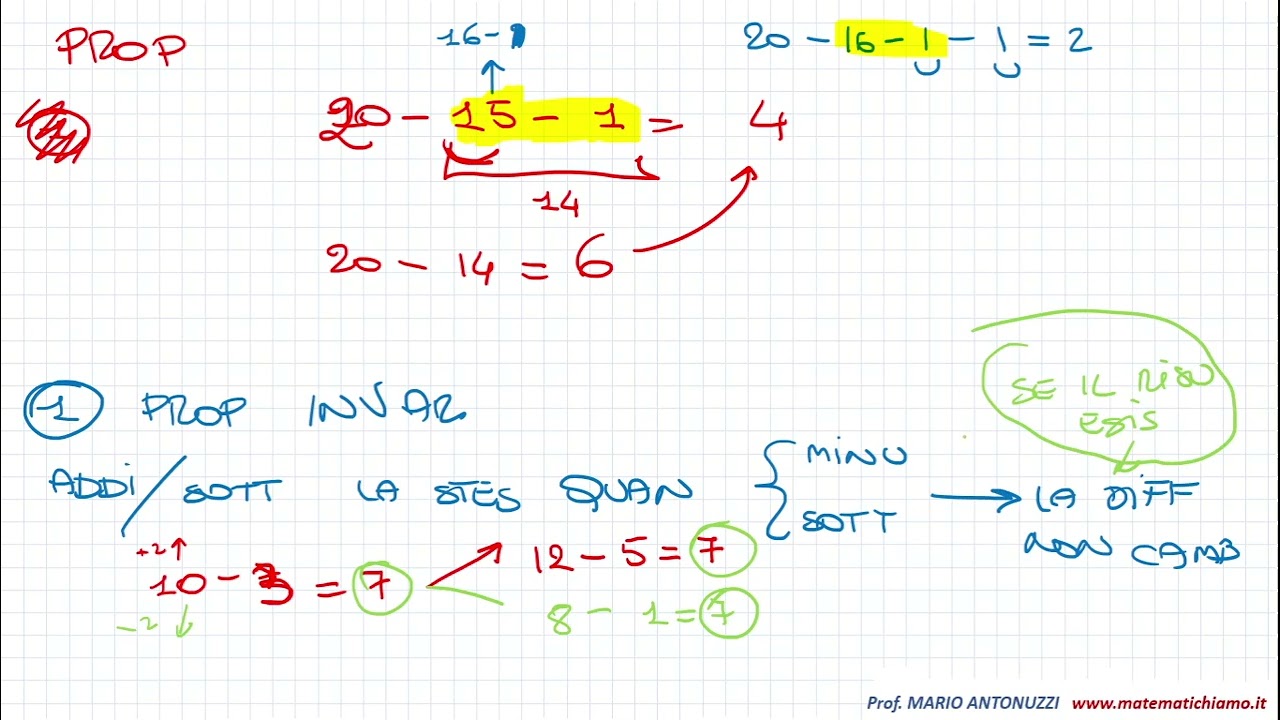 PROP
16-1
20 - 16 - 1 - 1 = 2
20 - 15 - 1 = 4
14
20 - 14 = 6
SE IL RISU
ESIS
1 PROP INVAR.
ADDI / SOTT LA STES QUAN { MINU SOTT → LA DIFF
NON CAMB
+2 ↑
10 - 3 = 7
-2 ↓
12 - 5 = 7
8 - 1 = 7
Prof. MARIO ANTONUZZI www.matematichiamo.it